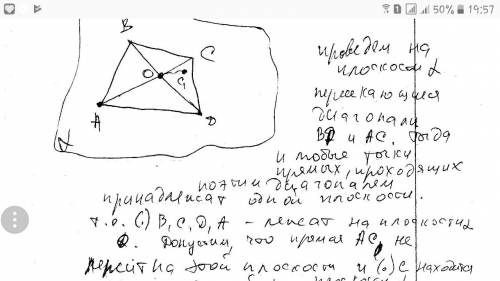 50% 19:57
B
C
O
G
A
D
α
проведем на
плоскости α
пересекающиеся
диагонали
BD и AC. Тогда
и любые точки
прямых, проходящих
по этим диагоналям
принадлежат одной плоскости.
т.о. (·) B, C, D, A - лежат на плоскости α
Допустим, что прямая AC не
лежит на этой плоскости и (·) C находится